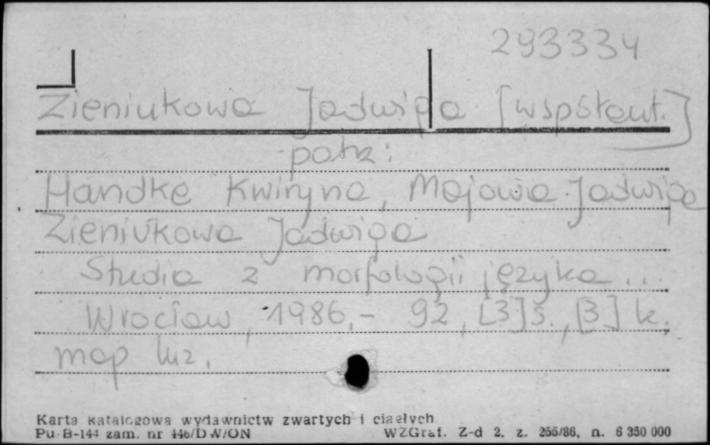 293334
Zieniukowa Jadwiga [współaut.]
patrz:
Handke Kwiryna, Majowa Jadwiga
Zieniukowa Jadwiga
Studia z morfologii języka...
Wrocław, 1986.- 92, [3] s., [3] k.
map luz.
Karta katalogowa wydawnictw zwartych i ciągłych.
Pu-B-144 zam. nr 446/DW/ON WZGraf. Z-d 2. z. 255/86, n. 6 350 000